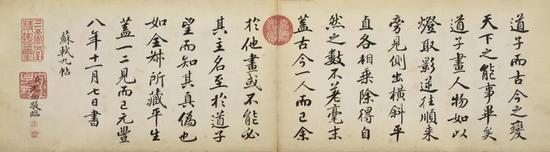 道子而古今之變
天下之能事畢矣
道子畫人物如以
燈取影逆往順來
旁見側出橫斜平
直各相乘除得自
然之數不差毫末
蓋古今一人而已余
於他畫或不能必
其主名至於道子
望而知其真偽也
如全叔所藏平生
蓋一二見而已元豐
八年十一月七日書
蘇軾九帖
敬臨
三希堂精鑑璽